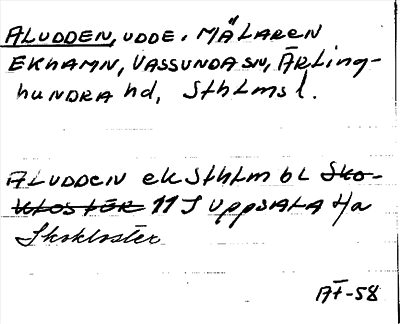 ALUDDEN, UDDE. MÄLAREN
EKHAMN, VASSUNDA SN, ÄRLING-
HUNDRA hd, SthLms l.
ALUDDEN ek SthLm bl Sko-
KLOSTER 11 J UppSALA t/a
Skokloster
AI-58